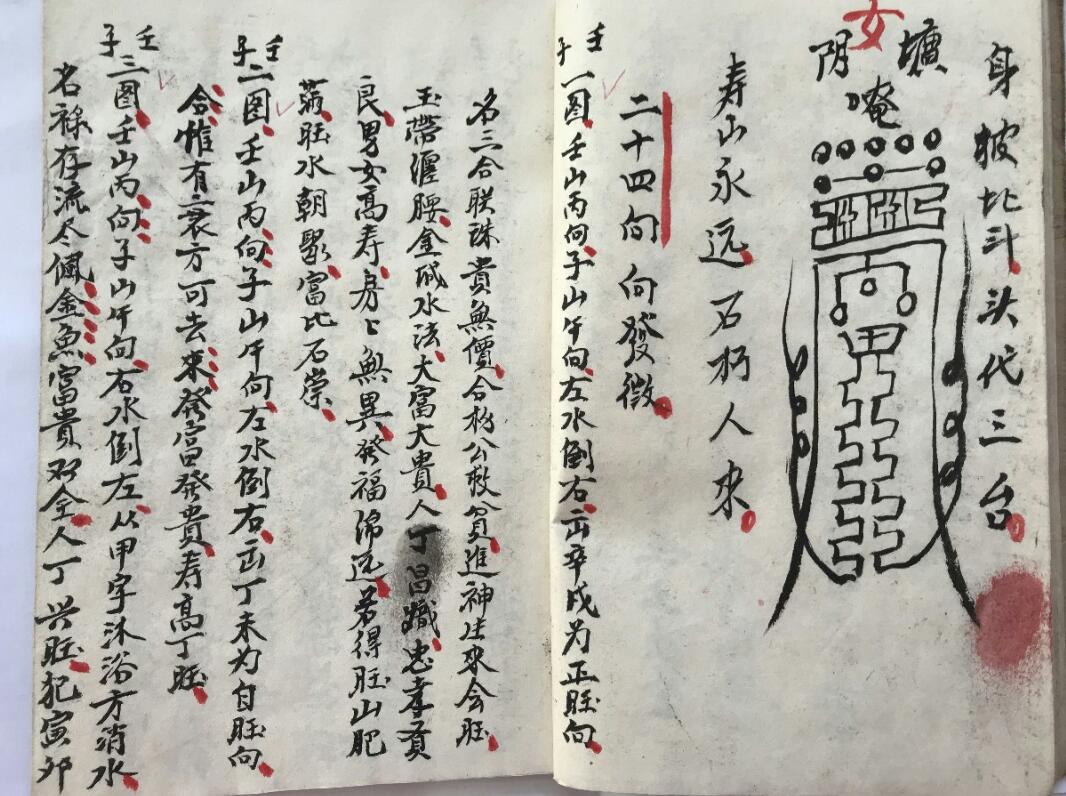 身披北斗头代三台
女
墉阴
唵
寿山永远石朽人来
二十四向向發微
壬子
一图壬山丙向子山午向左水倒右出辛戌为正旺向
名三合联珠貴無價合杨公救貧進神生來会旺
玉帶湹腰金成水法大富大貴人丁昌熾忠孝貢
良男女高寿房々無異發福绵远若得旺山肥
滿旺水朝聚富比石崇
壬子
二图壬山丙向子山午向左水倒右出丁未为自旺向
合惟有衰方可去來發富發貴寿高丁旺
壬子
三图壬山丙向子山午向右水倒左从甲字沐浴方消水
名禄存流尽佩金魚富貴双全人丁兴旺犯寅卯